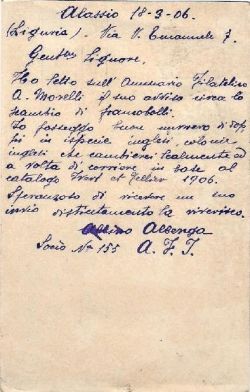 Alassio 18-3-06.
(Liguria). Via V. Emanuele 7.
Gent. Signore,
Ho letto sull'Annuario Filatelico
A. Morelli il suo avviso circa lo
scambio di francobolli.
Io posseggo buon numero di dop
pi in ispecie inglesi, colonie
inglesi che cambierei lealmente ed
a volta di corriere in base al
catalogo Yvert et Tellier 1906.
Speranzoso di ricevere un suo
invio distintamente la riverisco.
Albino Albenga
Socio N° 155 A. F. I.